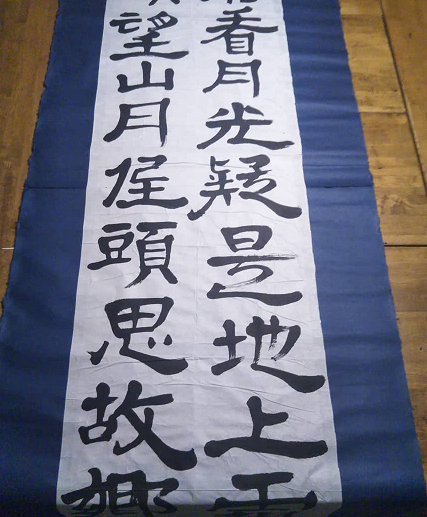 看月光疑是地上
望山月低頭思故鄉